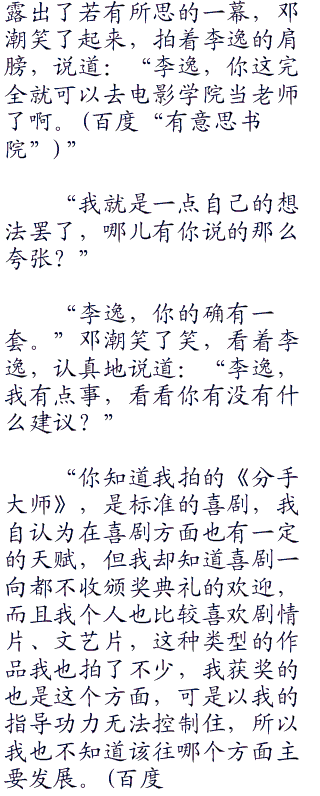 露出了若有所思的一幕，邓
潮笑了起来，拍着李逸的肩
膀，说道：“李逸，你这完
全就可以去电影学院当老师
了啊。(百度“有意思书
院”)”
“我就是一点自己的想
法罢了，哪儿有你说的那么
夸张？”
“李逸，你的确有一
套。”邓潮笑了笑，看着李
逸，认真地说道：“李逸，
我有点事，看看你有没有什
么建议？”
“你知道我拍的《分手
大师》，是标准的喜剧，我
自认为在喜剧方面也有一定
的天赋，但我却知道喜剧一
向都不收颁奖典礼的欢迎，
而且我个人也比较喜欢剧情
片、文艺片，这种类型的作
品我也拍了不少，我获奖的
也是这个方面，可是以我的
指导功力无法控制住，所以
我也不知道该往哪个方面主
要发展。(百度